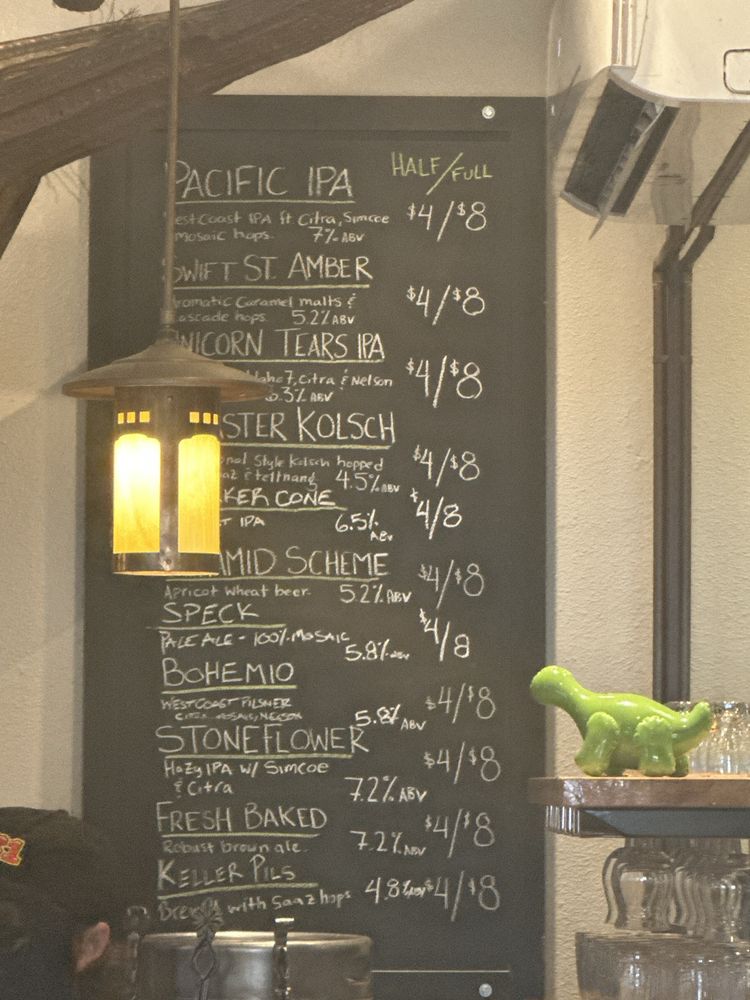 HALF/FULL
PACIFIC IPA
estCoast IPA ft Citra, Simcoe $4/$8
mosaic hops. 7% ABV
SWIFT ST. AMBER
romatic Caramel malts & $4/$8
ascade hops. 5.2% ABV
UNICORN TEARS IPA
Idaho 7, Citra & Nelson $4/$8
6.3% ABV
ASTER KOLSCH
nal Style Kolsch hopped $4/$8
aaz & tettnang 4.5% ABV
KER CONE $4/8
T IPA 6.5% ABV
AMID SCHEME
Apricot wheat beer. 5.2% ABV $4/$8
SPECK
PALE ALE - 100% MOSAIC $4/8
5.8% ABV
BOHEMIO
WESTCOAST PILSNER $4/$8
CITRA, MOSAIC, NELSON 5.8% ABV
STONEFLOWER
HaZy IPA w/ Simcoe $4/$8
& Citra 7.2% ABV
FRESH BAKED
Robust brown ale. 7.2% ABV $4/$8
KELLER PILS
with Saaz hops 4.8% ABV $4/$8